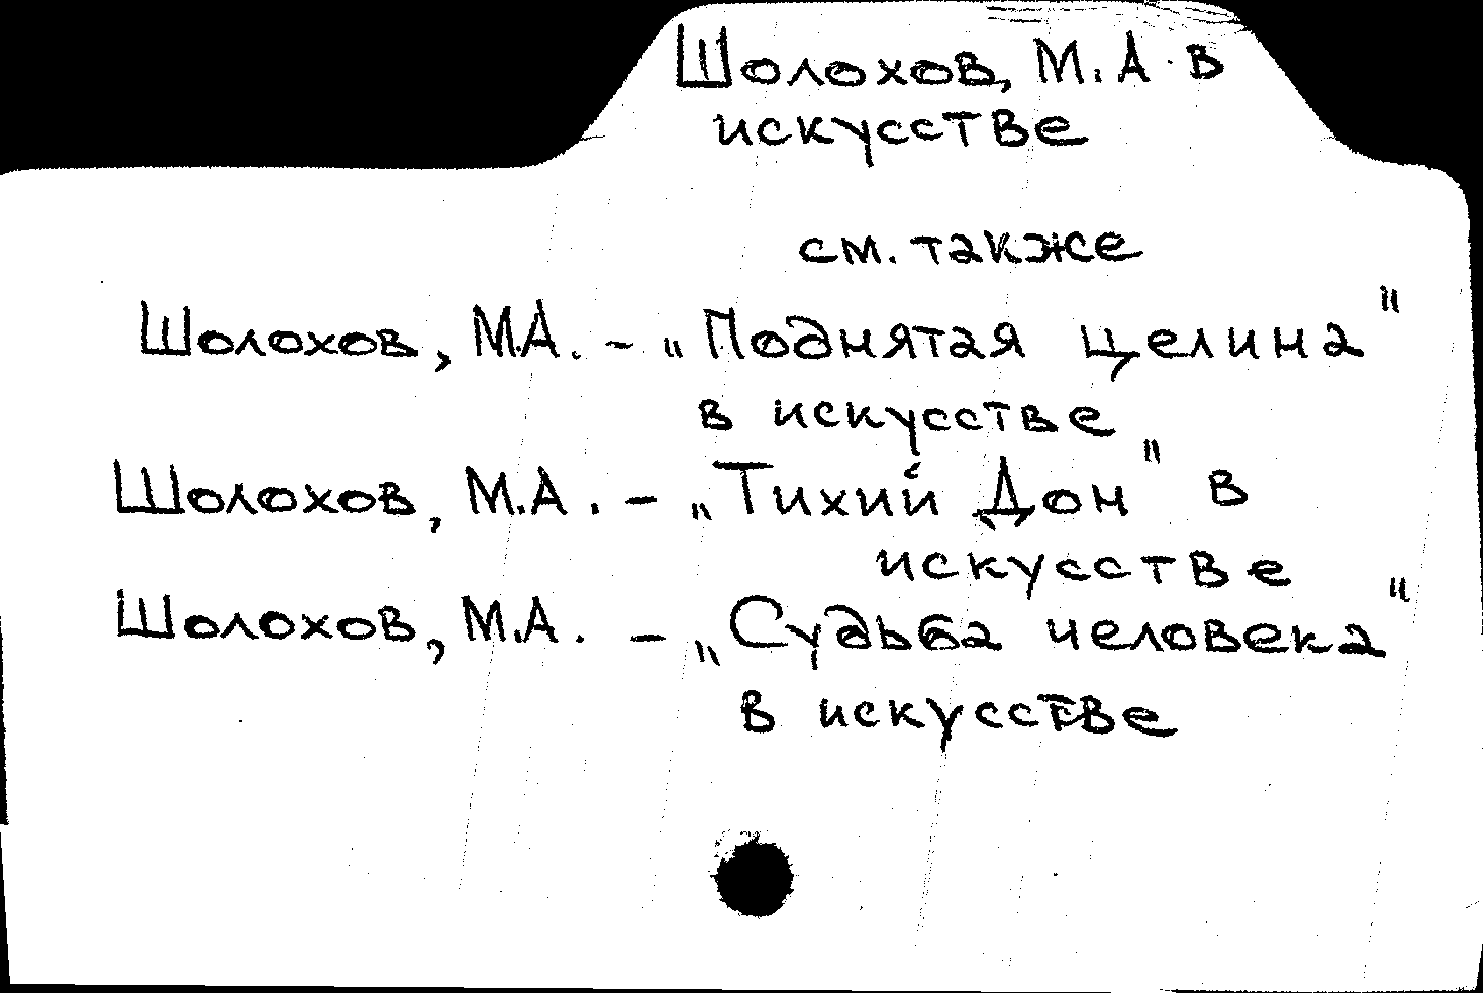 Шолохов, М.А. в
искусстве
см. также
Шолохов, М.А. - „Поднятая целина"
в искусстве
Шолохов, М.А. - „Тихий Дон" в
искусстве
Шолохов, М.А. - „Судьба человека"
в искусстве